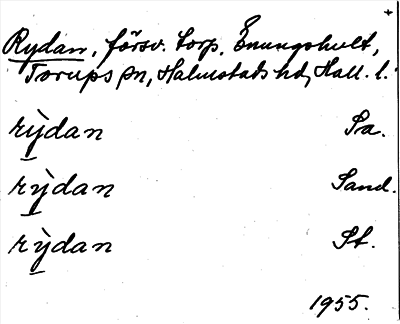 Rydan, försv. torp, Enungshult,
Torups sn, Halmstads hd, Hall. l.
rỳdan Sa.
rỳdan Sand.
rỳdan St.
1955.